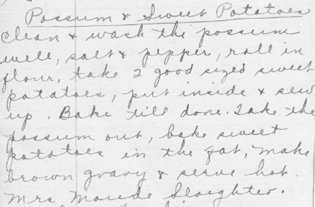 Possum & Sweet Potatoes
Clean & wash the possum
well, salt & pepper, roll in
flour, take 2 good sized sweet
potatoes, put inside & sew
up. Bake till done. Take the
possum out, bake sweet
potatoes in the fat, make
brown gravy & serve hot.
Mrs. Maude Slaughter.